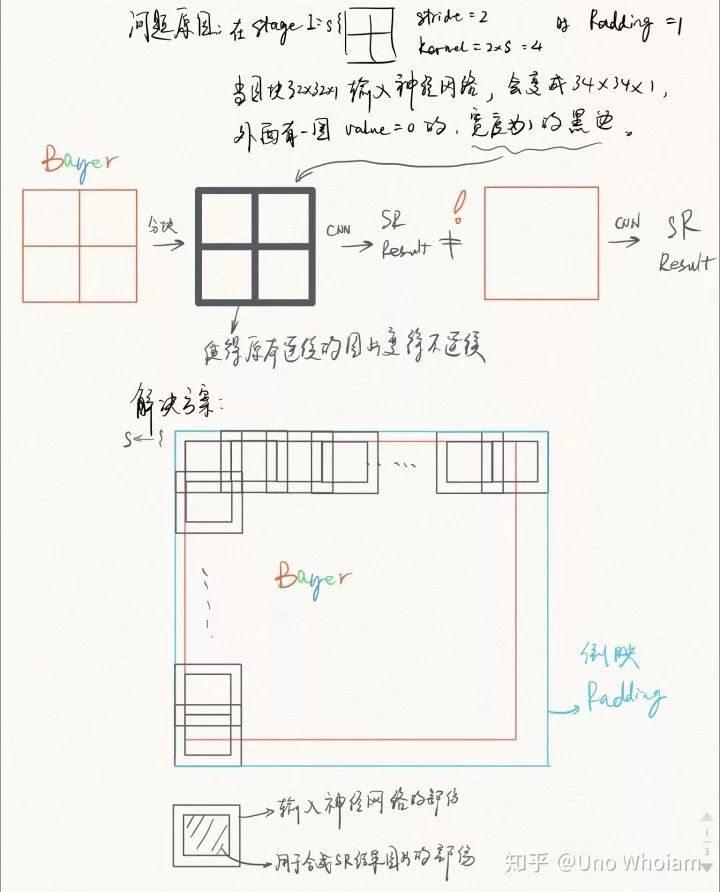 问题原因：在 stage 1: S{ stride = 2 的 Padding = 1
kernel = 2×S = 4
当图块32×32×1 输入神经网络，会变成 34×34×1，
外面有一圈 value=0 的，宽度为1的黑边。
Bayer
分块
CNN
SR
Result
≠
!
CNN
SR
Result
使得原本连续的图片变得不连续
解决方案：
S
Bayer
倒映
Padding
输入神经网络的部份
用于合成SR结果图片的部份
1
3
知乎 @Uno Whoiam